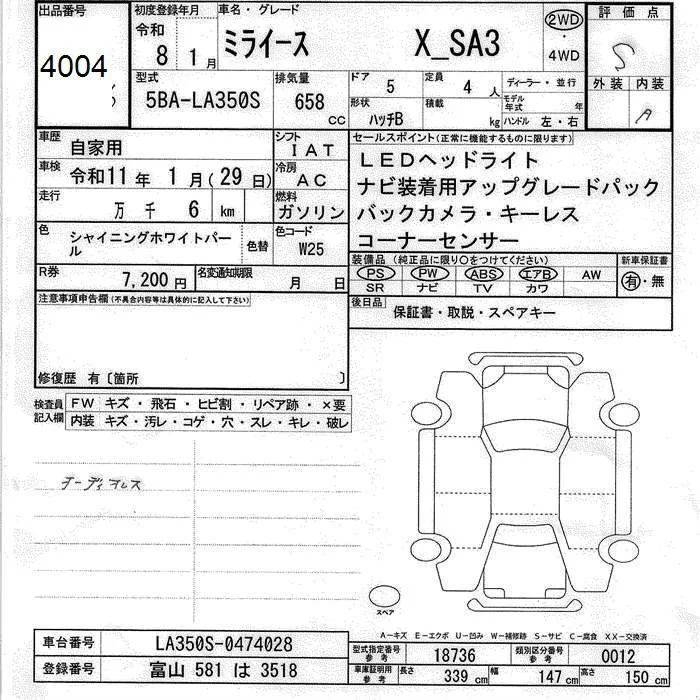 出品番号
4004
初度登録年月
令和
8 1 月
車名・グレード
ミライース X_SA3
2WD
・
4WD
評価点
S
外装 内装
A
型式
5BA-LA350S
排気量
658
CC
ドア 5
定員 4 人
形状
ハッチB
積載
kg
ディーラー・並行
モデル年式 年
ハンドル 左・右
車歴
自家用
シフト
IAT
車検
令和11年 1月(29日)
冷房
AC
走行
万 千 6 km
燃料
ガソリン
色
シャイニングホワイトパール
色替
色コード
W25
R券
7,200 円
名変通知期限
月 日
セールスポイント(正常に機能するものに限ります)
LEDヘッドライト
ナビ装着用アップグレードパック
バックカメラ・キーレス
コーナーセンサー
装備品(純正品に限り○をつけてください)
PS PW ABS エアB AW
SR ナビ TV カワ
新車保証書
有・無
後日品
保証書・取説・スペアキー
注意事項申告欄(不具合内容等は具体的に記入して下さい)
修復歴 有〔箇所 〕
検査員記入欄
FW キズ・飛石・ヒビ割・リペア跡・×要
内装 キズ・汚レ・コゲ・穴・スレ・キレ・破レ
スペア
A-キズ E-エクボ U-凹み W-補修跡 S-サビ C-腐食 XX-交換済
車台番号
LA350S-0474028
登録番号
富山 581 は 3518
型式指定番号
参考
18736
類別区分番号
参考
0012
車庫証明用
参考
長さ 339 cm
幅 147 cm
高さ 150 cm